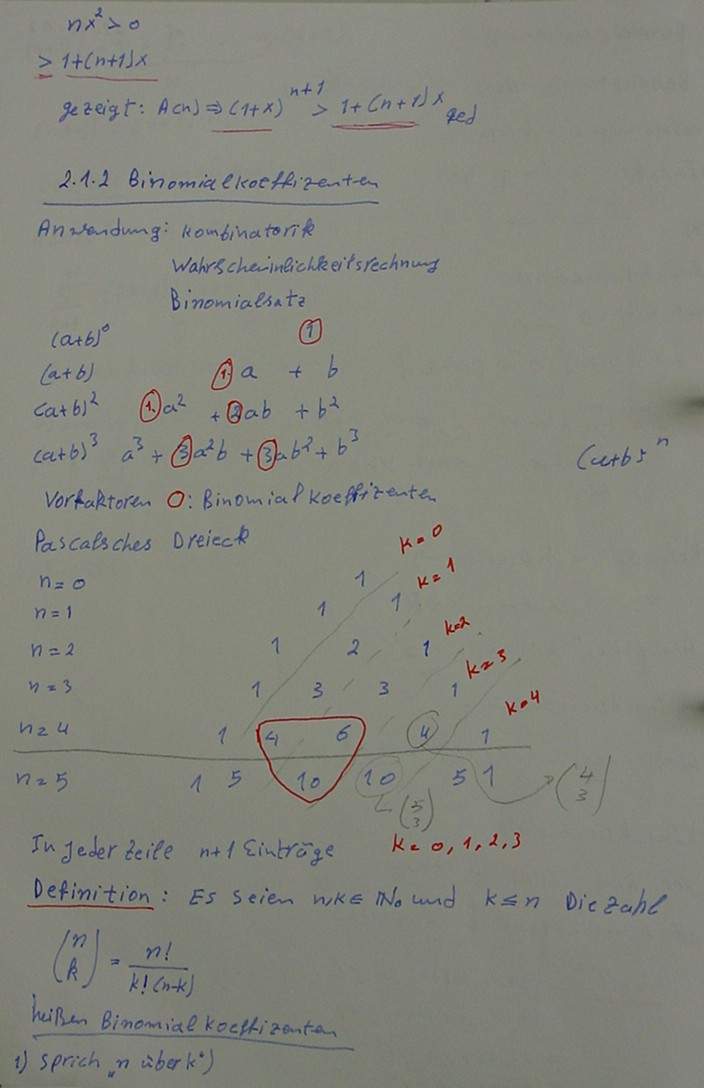 nx² > 0
> 1+(n+1)x
gezeigt: A(n) ⇒ (1+x)^{n+1} > 1+(n+1)x qed
2.1.2 Binomialkoeffizenten
Anwendung: Kombinatorik
Wahrscheinlichkeitsrechnung
Binomialsatz
(a+b)⁰ 1
(a+b) 1·a + b
(a+b)² 1·a² + 2ab + b²
(a+b)³ a³ + 3a²b + 3ab² + b³ (a+b)ⁿ
Vorfaktoren O: Binomialkoeffizenten
Pascalsches Dreieck k=0
n=0 1 k=1
n=1 1 1
n=2 1 2 1 k=2
n=3 1 3 3 1 k=3
n=4 1 4 6 4 1 k=4
n=5 1 5 10 10 5 1 (4 3)
(5 3)
In jeder Zeile n+1 Einträge k=0,1,2,3
Definition: Es seien n,k∈ ℕ₀ und k≤n Die Zahl
(n k) = n!/k!(n-k)
heißen Binomialkoeffizenten
1) sprich „n über k“)